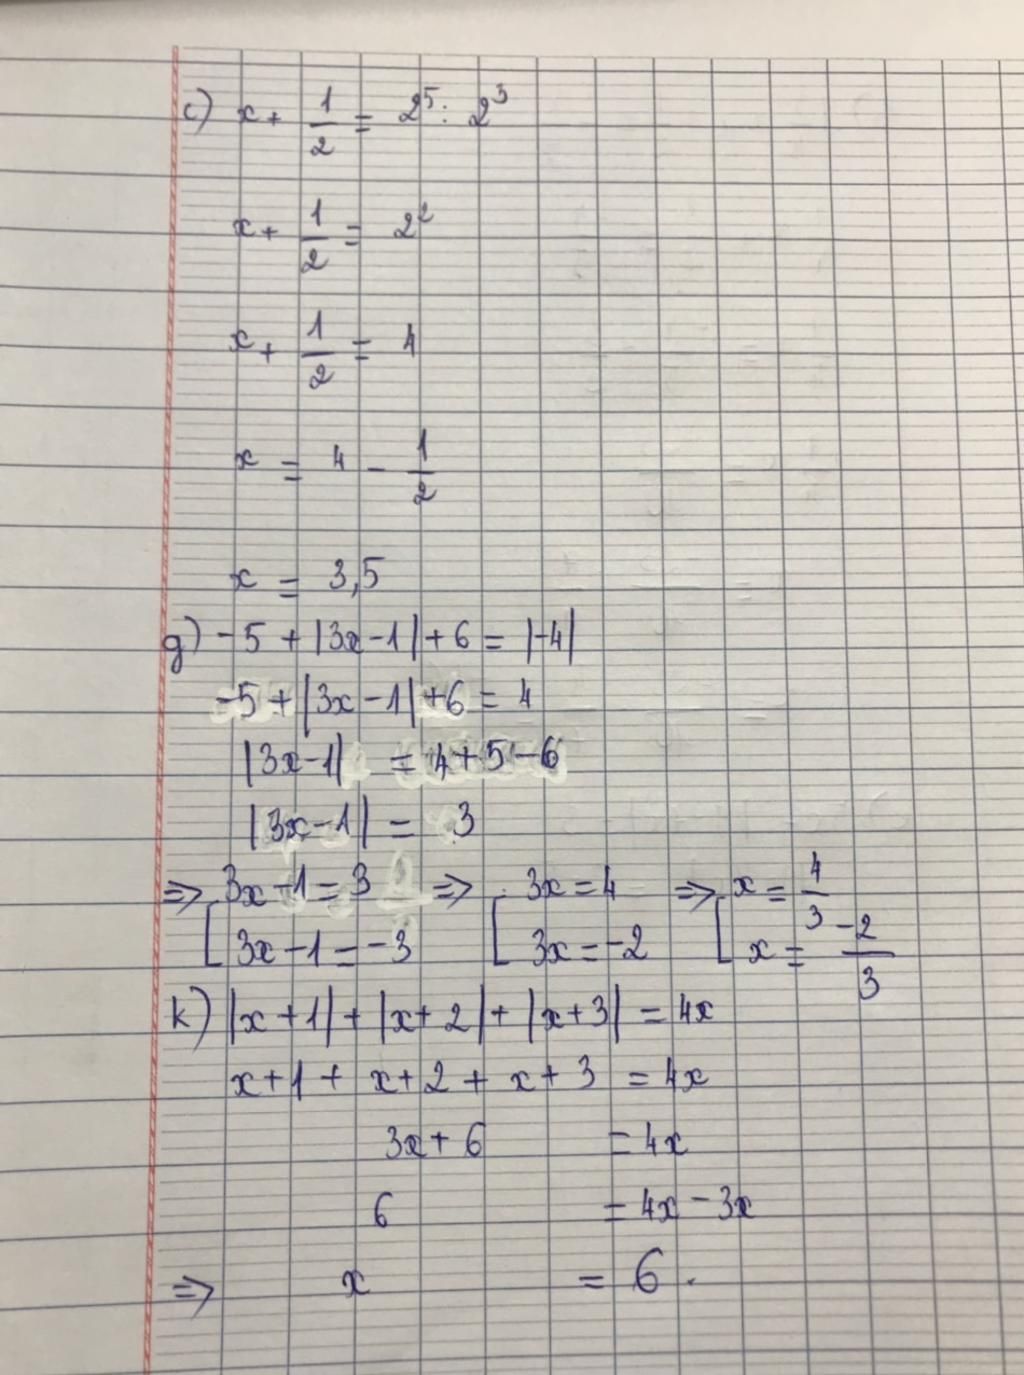 c) x + 1/2 = 2⁵ : 2³
x + 1/2 = 2²
x + 1/2 = 4
x = 4 - 1/2
x = 3,5
g) -5 + |3x - 1| + 6 = |-4|
-5 + |3x - 1| + 6 = 4
|3x - 1| = 4 + 5 - 6
|3x - 1| = 3
=> [ 3x - 1 = 3 => [ 3x = 4 => [ x = 4/3
3x - 1 = -3 3x = -2 x = -2/3
k) |x + 1| + |x + 2| + |x + 3| = 4x
x + 1 + x + 2 + x + 3 = 4x
3x + 6 = 4x
6 = 4x - 3x
=> x = 6.